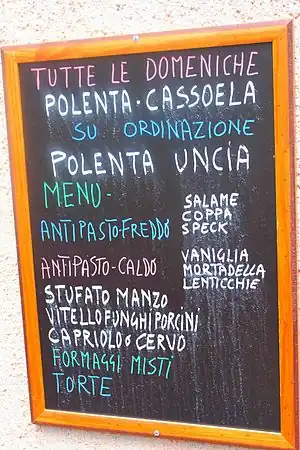 TUTTE LE DOMENICHE
POLENTA · CASSOELA
SU ORDINAZIONE
POLENTA UNCIA
MENU -
ANTIPASTO-FREDDO
SALAME
COPPA
SPECK
ANTIPASTO-CALDO
VANIGLIA
MORTADELLA
LENTICCHIE
STUFATO MANZO
VITELLO FUNGHI PORCINI
CAPRIOLO O CERVO
FORMAGGI MISTI
TORTE